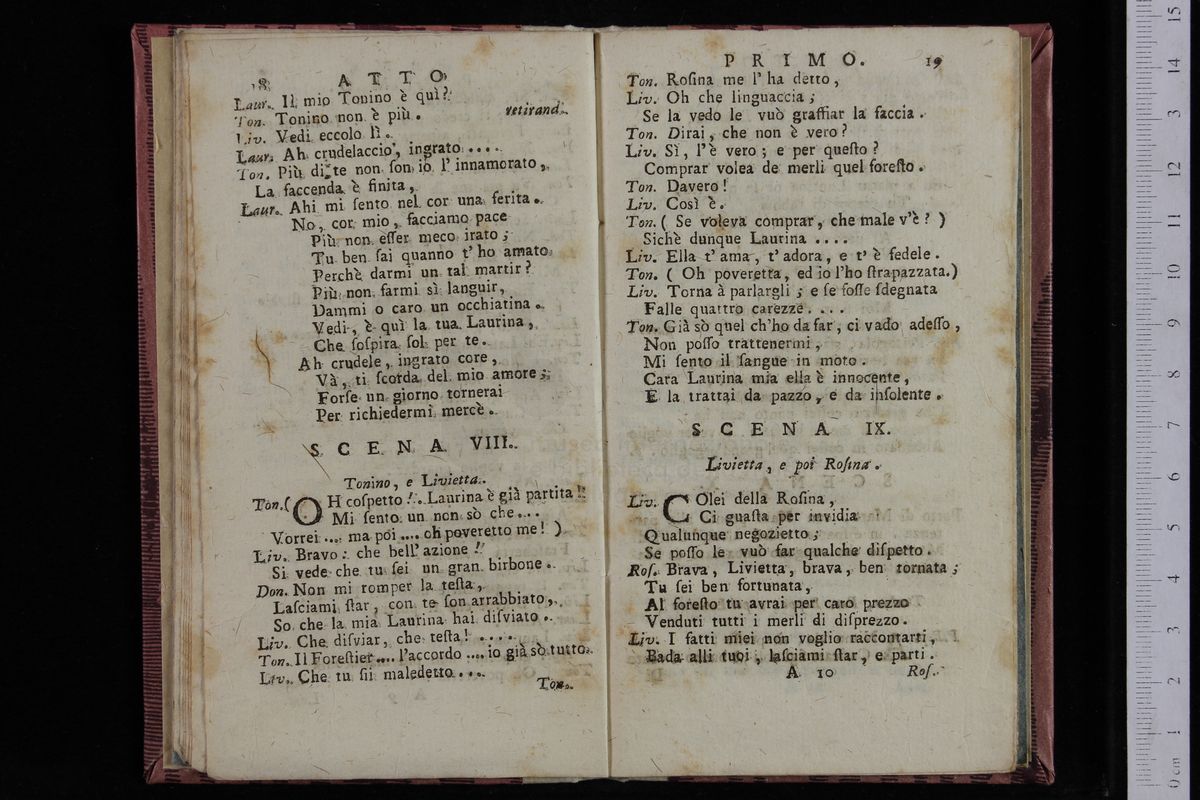 18 ATTO
Laur. Il mio Tonino è quì?
Ton. Tonino non è più. retirand.
Liv. Vedi eccolo lì.
Laur. Ah crudelaccio, ingrato ....
Ton. Più di te non son io l'innamorato,
La faccenda è finita,
Laur. Ahi mi sento nel cor una ferita.
No, cor mio, facciamo pace
Più non esser meco irato;
Tu ben sai quanno t'ho amato
Perchè darmi un tal martir?
Più non farmi sì languir,
Dammi o caro un occhiatina.
Vedi, è quì la tua Laurina,
Che sospira sol per te.
Ah crudele, ingrato core,
Và, ti scorda del mio amore;
Forse un giorno tornerai
Per richiedermi mercè.
SCENA VIII.
Tonino, e Livietta.
Ton. (OH cospetto! Laurina è già partita!
Mi sento un non sò che...
Vorrei .... ma poi .... oh poveretto me! )
Liv. Bravo: che bell'azione!
Si vede che tu sei un gran birbone.
Don. Non mi romper la testa,
Lasciami star, con te son arrabbiato,
So che la mia Laurina hai disviato.
Liv. Che disviar, che testa! ....
Ton. Il Forestier .... l'accordo .... io già sò tutto.
Liv. Che tu sii maledetto....
Ton.
PRIMO. 19
Ton. Rosina me l'ha detto,
Liv. Oh che linguaccia;
Se la vedo le vuò graffiar la faccia.
Ton. Dirai, che non è vero?
Liv. Sì, l'è vero; e per questo?
Comprar volea de merli quel foresto.
Ton. Davero!
Liv. Così è.
Ton. ( Se voleva comprar, che male v'è? )
Sichè dunque Laurina ....
Liv. Ella t'ama, t'adora, e t'è fedele.
Ton. ( Oh poveretta, ed io l'ho strapazzata.)
Liv. Torna à parlargli; e se fosse sdegnata
Falle quattro carezze....
Ton. Già sò quel ch'ho da far, ci vado adesso,
Non posso trattenermi,
Mi sento il sangue in moto.
Cara Laurina mia ella è innocente,
E la trattai da pazzo, e da insolente.
SCENA IX.
Livietta, e poi Rosina.
Liv. COlei della Rosina,
Ci guasta per invidia
Qualunque negozietto;
Se posso le vuò far qualche dispetto.
Ros. Brava, Livietta, brava, ben tornata;
Tu sei ben fortunata,
Al foresto tu avrai per caro prezzo
Venduti tutti i merli di disprezzo.
Liv. I fatti miei non voglio raccontarti,
Bada alli tuoi, lasciami star, e parti.
A 10 Ros.
0 cm 1 2 3 4 5 6 7 8 9 10 11 12 13 14 15